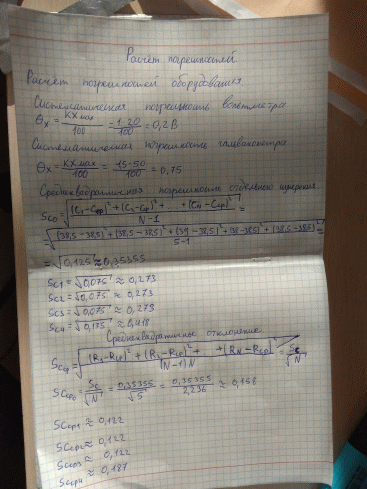 Расчёт погрешностей
Расчёт погрешностей оборудования.
Систематическая погрешность вольтметра
Θx = Kxmax/100 = 1·20/100 = 0,2 В
Систематическая погрешность гальванометра
Θx = Kxmax/100 = 1,5·50/100 = 0,75
Среднеквадратичная погрешность отдельного измерения
Sc0 = √((C1-Cср)² + (C2-Cср)² + ... + (CN-Cср)²)/(N-1) =
= √((38,5-38,5)² + (38,5-38,5)² + (39-38,5)² + (38-38,5)² + (38,5-38,5)²)/(5-1) =
= √0,125 ≈ 0,35355
Sc1 = √0,075 ≈ 0,273
Sc2 = √0,075 ≈ 0,273
Sc3 = √0,075 ≈ 0,273
Sc4 = √0,175 ≈ 0,418
Среднеквадратичное отклонение
Scср = √((R1-Rср)² + (R2-Rср)² + ... + (RN-Rср)²)/((N-1)N) = Sc/√N
Scср0 = Sc/√N = 0,35355/√5 = 0,35355/2,236 ≈ 0,158
Scср1 ≈ 0,122
Scср2 ≈ 0,122
Scср3 ≈ 0,122
Scср4 ≈ 0,187